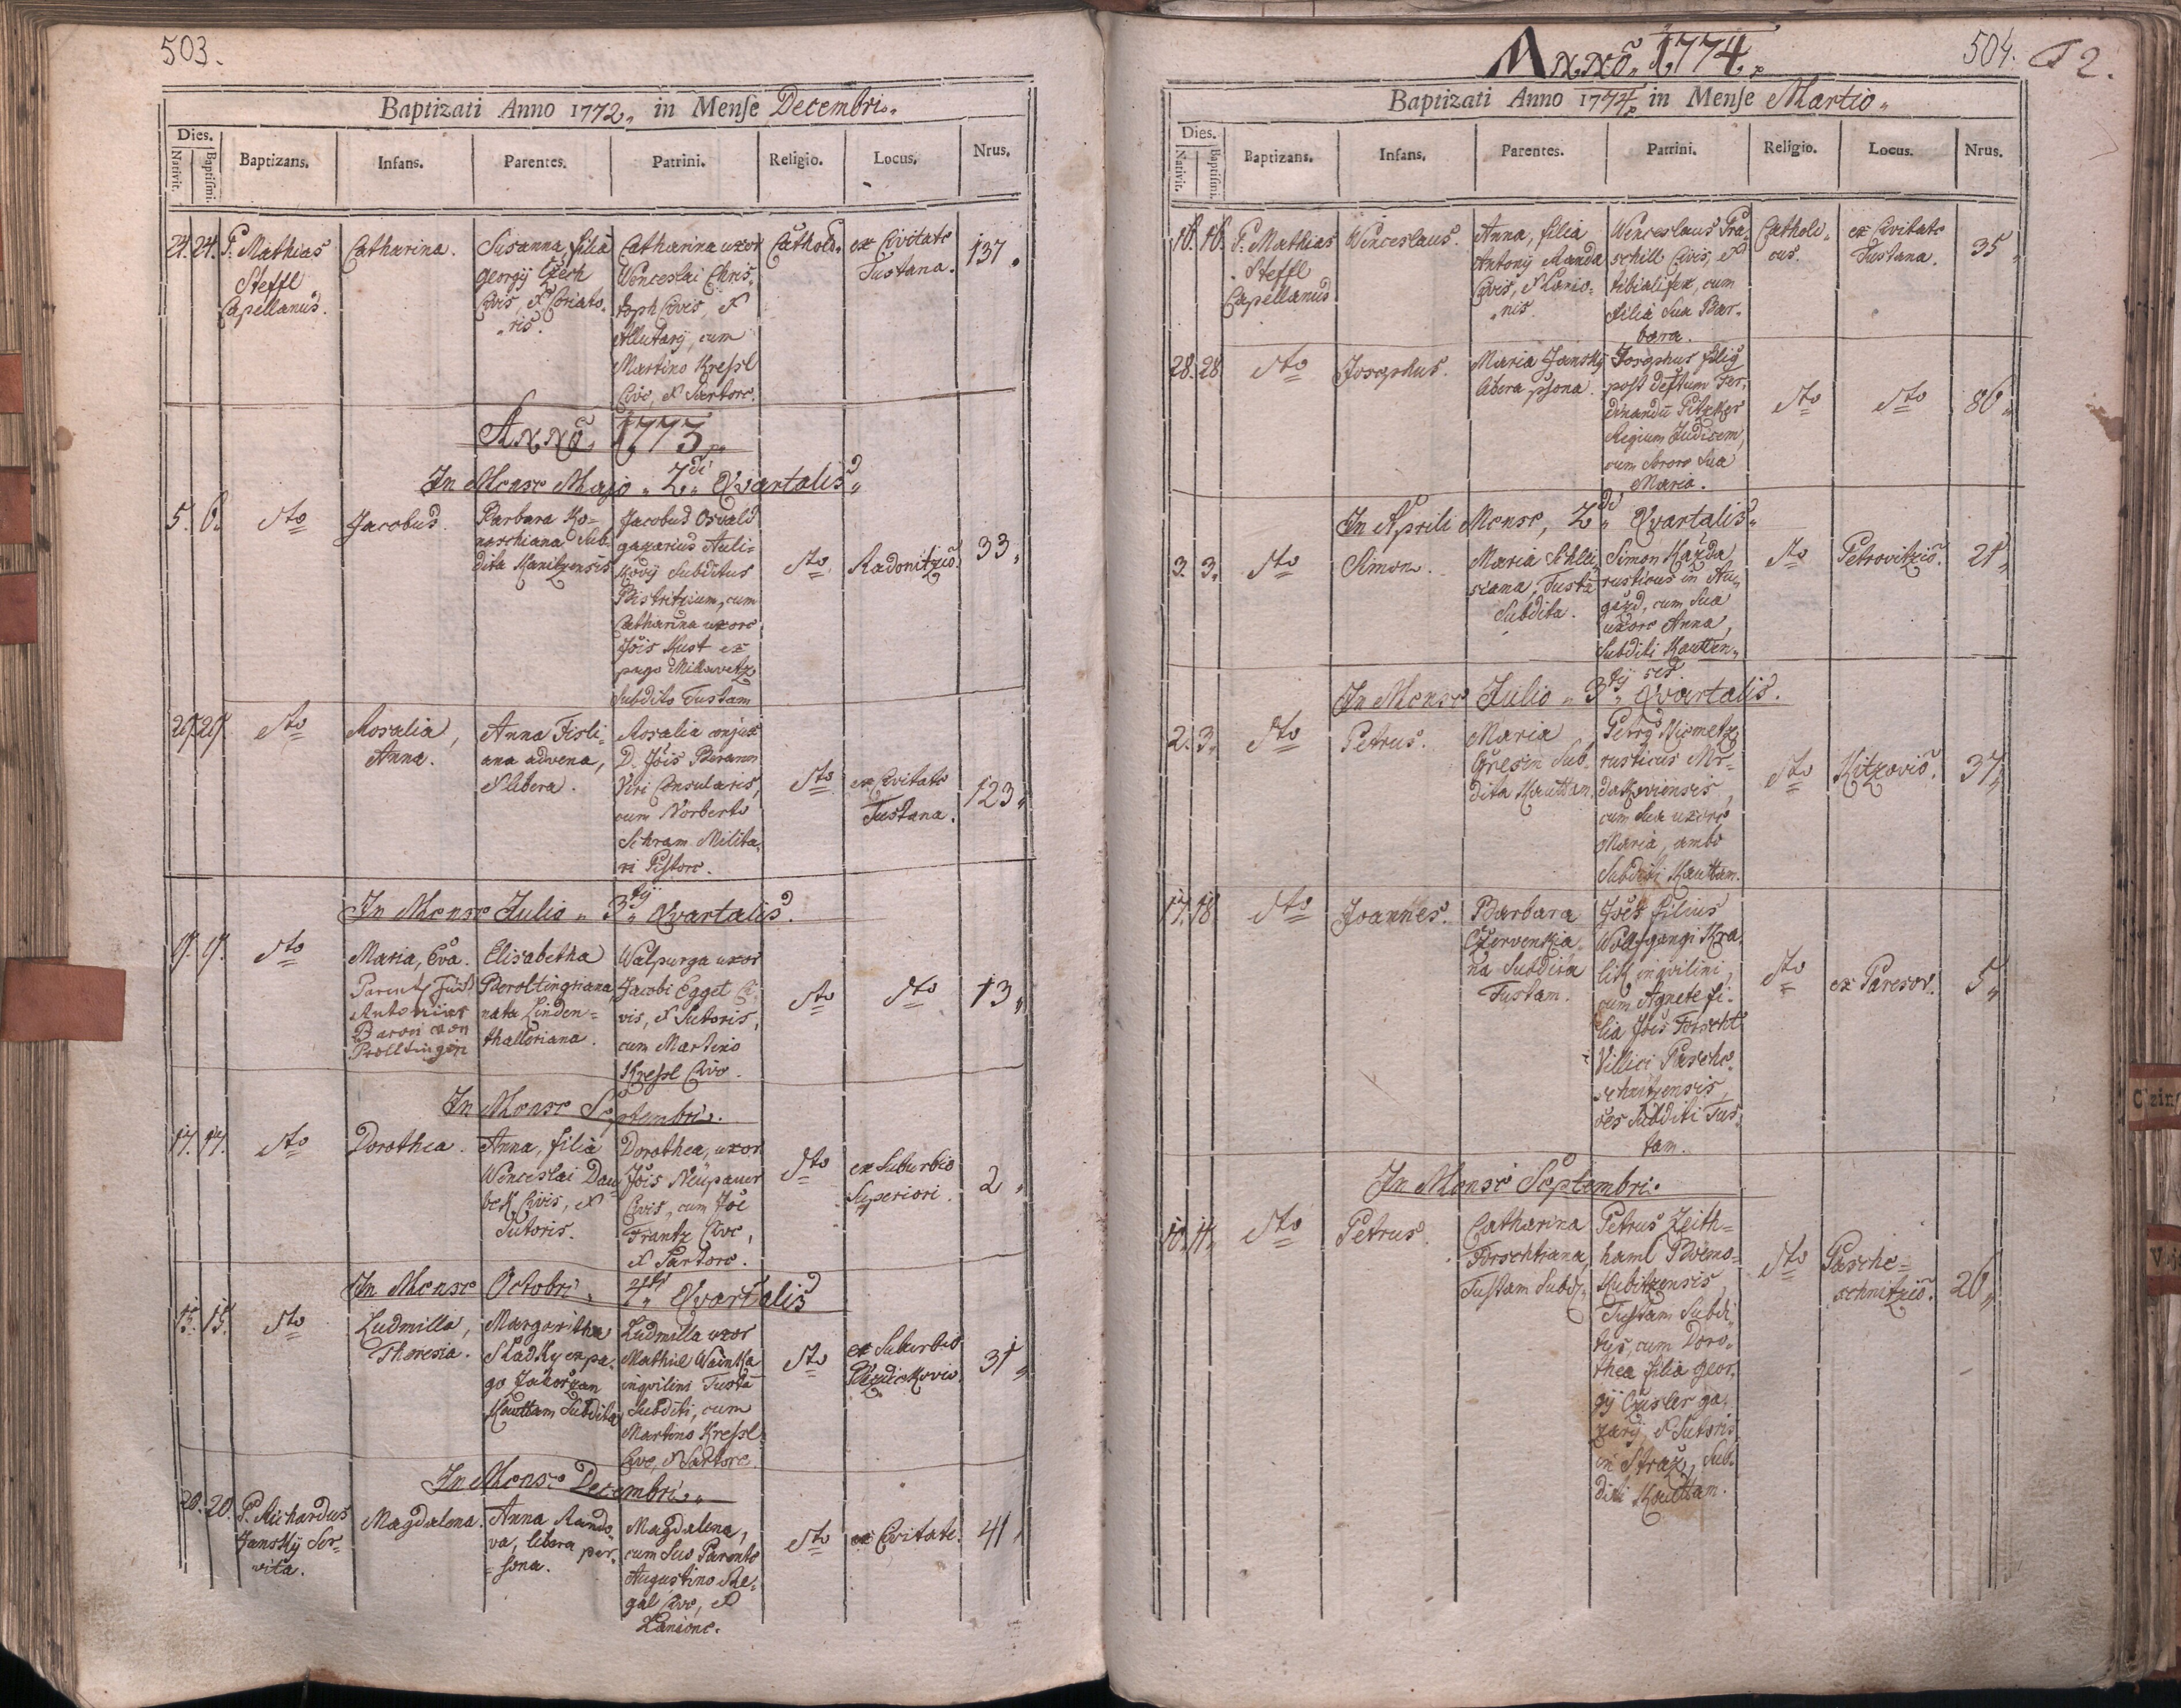 503.
Baptizati Anno 1772 „ in Menſe Decembri„
Dies.
Nativit. Baptiſmi. Baptizans. Infans. Parentes. Patrini. Religio. Locus. Nrus.
24. 24. P. Mathias
Steffl
Capellanus.
Catharina.
Susanna filia
Georgÿ Czech
Civis, & Coriato„
„ris.
Catharina uxor
Wenceslai Chris„
toph Civis, &
Allutarÿ, cum
Martino Kreſsl
Cive, & Sartore.
Cathol.
ex Civitate
Tustana.
137.
Anno 1773
In Mense Majo „ 2di Qvartalis„
5. 6. dto
Jacobus.
Barbara Ko=
naschiana Sub=
dita Kanitzensis
Jacobus Osvald
gazarius Auli=
kovÿ Subditus
Bistritzium, cum
Catharina uxore
Jöis Kust ex
pago Millavetz
Subdito Tustam
dto
Radonitzio
33„
29. 29. dto
Rosalia,
Anna.
Anna Fisli=
ana advena,
& libera.
Rosalia conjux
D. Jöis Berann
Viri Consularis,
cum Norberto
Schram Milita„
ri Pistore.
dto
ex Civitate
Tustana.
123„
In Mense Julio „ 3tÿ Qvartalis.
9. 9. dto
Maria, Eva.
Parent
Antonius
Baron von
Prolltingen
Elisabetha
Broltingriana
nata Linden=
thalleriana.
Walpurga uxor
Jacobi Egget Ci
vis, & Sutoris,
cum Martino
Kreſsl Cive.
dto
dto
13„
In Mense Septembri.
17. 17. dto
Dorothea.
Anna, filia
Wenceslai Dau
bek Civis, &
Sutoris.
Dorothea, uxor
Jöis Neüpauer
Civis, cum Jöe
Frantz Cive,
& Sartore.
dto
ex Suburbio
Superiori.
2„
In Mense Octobri „ 4ti Qvartalis
15. 15. dto
Ludmilla,
Theresia.
Margaritha
Sladky ex pa„
go Zahorzan
Kauttam Subdita
Ludmilla uxor
Mathiæ Wainka
inqvilini Tusta
Subditi, cum
Martino Kreſsl
Cive, & Sartore
dto
ex Suburbio
31„
In Mense Decembri„
20. 20. P. Richardus
Janskÿ Ser=
vita.
Magdalena.
Anna Rando„
va, libera per„
„sona.
Magdalena,
cum Suo Parente
Augustino Re„
gal Cive, &
Lanione.
dto
ex Civitate.
41„
Anno 1774
504. 52.
Baptizati Anno 1774 in Menſe Martio„
Dies.
Nativit. Baptiſmi. Baptizans. Infans. Parentes. Patrini. Religio. Locus. Nrus.
16. 16. P. Mathias
Steffl
Capellanus
Wenceslaus.
Anna, filia
Antonÿ Randa
Civis, & Lanio=
„nis.
Wenceslaus Pra„
schill Civis, &
tibialifex, cum
filia Sua Bar„
bara.
Catholi„
cus.
ex Civitate
Tustana.
35„
28. 28. dto
Josephus.
Maria Janskÿ
libera pſona.
Josephus filiÿ
post deftum Fer„
dinandū Pitzker
Regium Judicem,
cum Sorore Sua
Maria.
dto
dto
86„
In Aprili Mense, 2di Qvartalis„
3. 3. dto
Simon.
Maria Schlei
siana, Tustā
Subdita.
Simon Kanda
rusticus in Au„
gezd, cum Sua
uxore Anna,
Subditi Kautten„
ses.
dto
Petrovitzio.
21„
In Mense Julio „ 3tÿ Qvartalis.
2. 3. dto
Petrus.
Maria
Gresin Sub„
dita Kauttam.
Petrÿ Niemetz
rusticus Mr=
dakoviensis,
cum Sua uxore
Maria, ambo
Subditi Kauttam.
dto
Kitzovio.
37„
17. 18. dto
Joannes.
Barbara
Czervenkia„
na Subdita
Tustam.
Jöes filius
Wolfgangi Kra„
lik inqvilini,
cum Agnete fi„
lia Jöis Forscht
Villici Pasche„
schnitzensis,
öes Subditi Tus„
tam.
dto
ex Paresov.
5„
In Mense Septembri.
10. 11. dto
Petrus.
Catharina
Forschtiana,
Tustam Subd„
Petrus Zeith=
haml Boemo=
Kubitzensis
Tustam Subdi
tus, cum Doro„
thea filia Geor„
gÿ Czisler ga„
zarÿ, & Sutoris
in Straz, Sub„
diti Kauttam.
dto
Pasche=
schnitzio.
20„